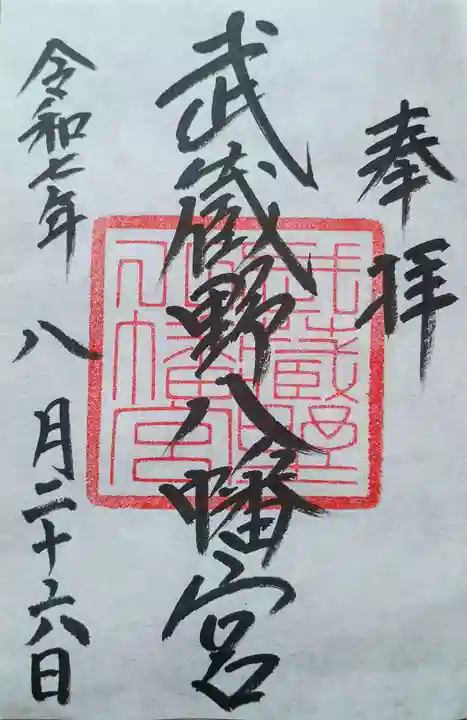 奉拝
武蔵野八幡宮
令和七年八月二十六日
武蔵野
八幡宮